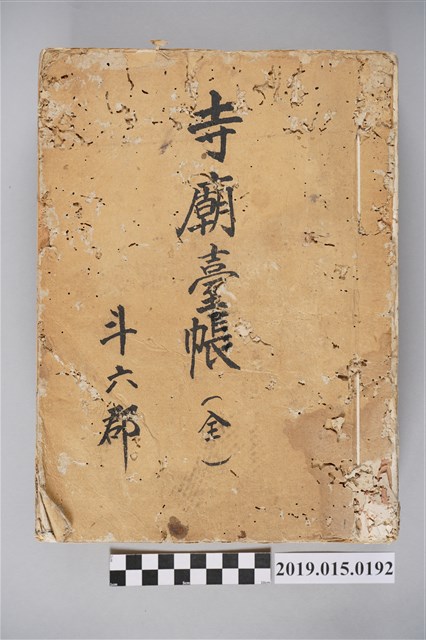 寺廟臺帳(全)
斗六郡
2019.015.0192